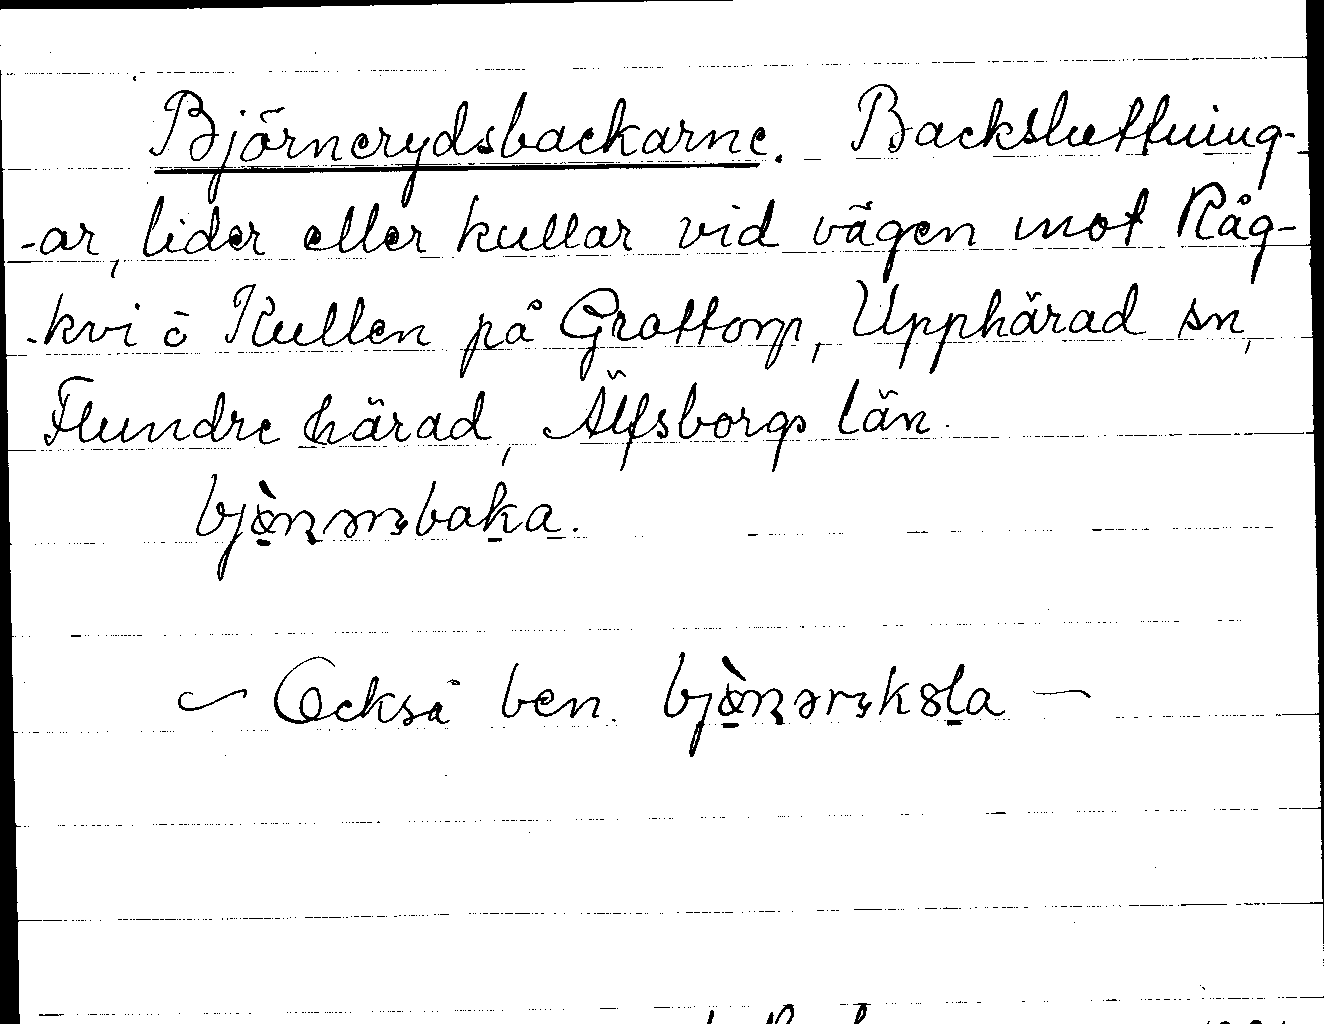 Björnerydsbackarne. Backsluttning-
-ar, lider eller kullar vid vägen mot Råg-
-kvi ö Kullen på Grattorp, Upphärad sn,
Flundre härad, Älfsborgs län.
bjə̀nərsbaka.
~ Också ben. bjə̀nərsksla ~